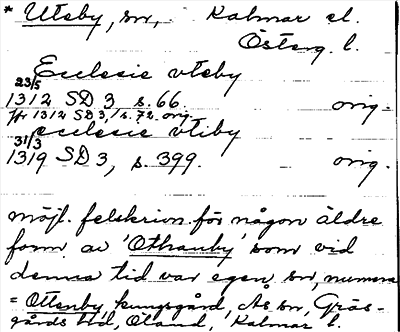 * Utsby, sn,   Kalmar el.
Österg. l.
Ecclesie vtsby
23/5
1312 SD 3 s. 66.   orig.
jfr 1312 SD 3, s. 72. orig.
ecclesie vtiby
31/3
1319 SD 3, s. 399.   orig.
möjl. felskrivn. för någon äldre
form av 'Othænby' som vid
denna tid var egen sn, numera
= Ottenby, kungsgård, Ås sn, Gräs-
gårds hd, Öland, Kalmar l.